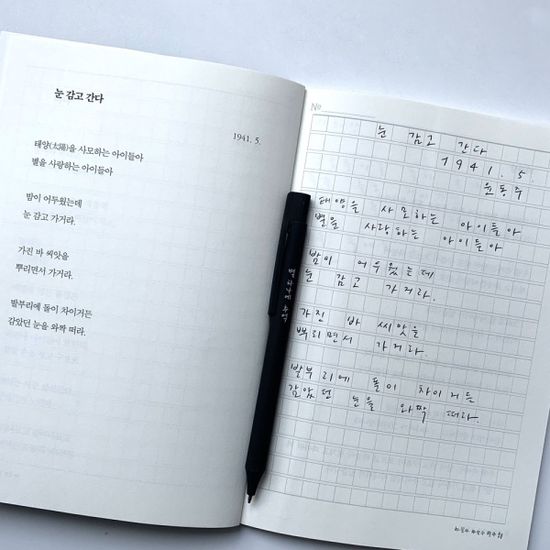 눈 감고 간다
1941. 5.
태양(太陽)을 사모하는 아이들아
별을 사랑하는 아이들아
밤이 어두웠는데
눈 감고 가거라.
가진 바 씨앗을
뿌리면서 가거라.
발부리에 돌이 차이거든
감았던 눈을 와짝 떠라.
별 하나에 추억
No
눈 감고 간다
1941. 5.
윤동주
태양을 사모하는 아이들아
별을 사랑하는 아이들아
밤이 어두웠는데
눈 감고 가거라.
가진 바 씨앗을
뿌리면서 가거라.
발부리에 돌이 차이거든
감았던 눈을 와짝 떠라.